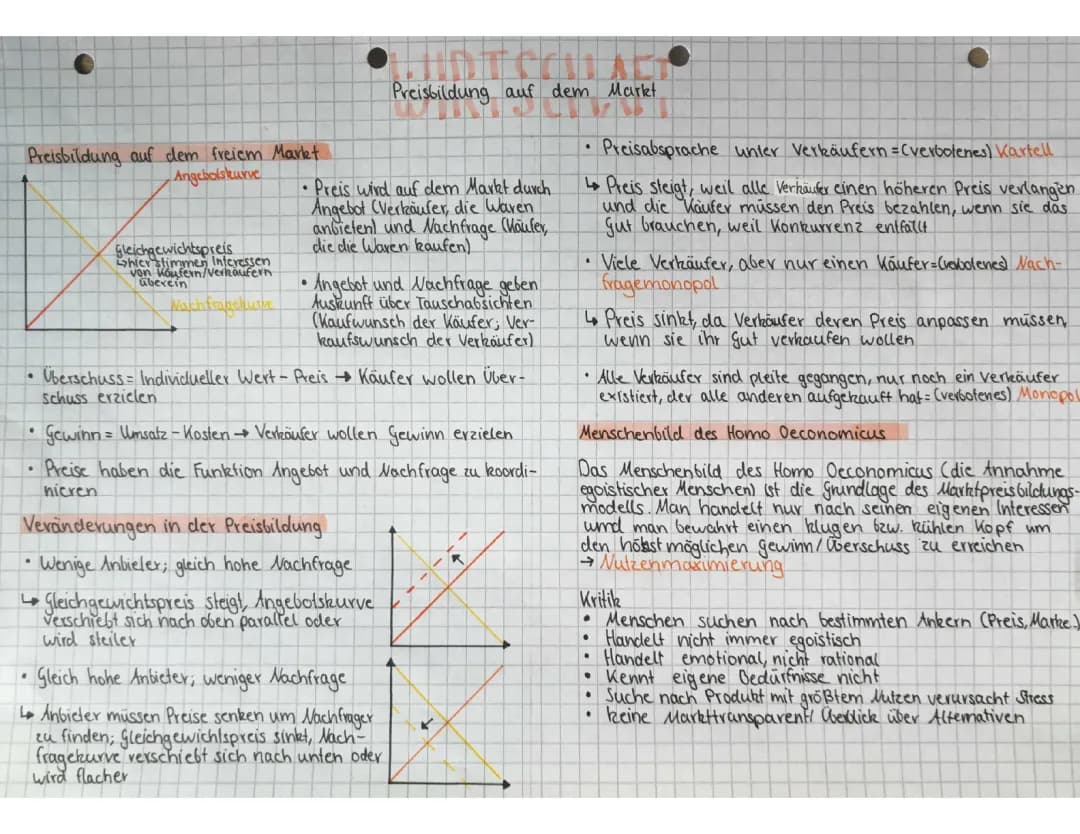 WIRTSCHAFT
Preisbildung auf dem Markt
WIRTSCHAFT
Preisbildung auf dem freiem Markt
Angebotskurve
Gleichgewichtspreis
↳hier stimmen Interessen
von Käufern/Verkäufern
überein
Nachfragekurve
• Preis wird auf dem Markt durch
Angebot (Verkäufer, die Waren
anbieten) und Nachfrage (Käufer,
die die Waren kaufen)
• Angebot und Nachfrage geben
Auskunft über Tauschabsichten
(Kaufwunsch der Käufer; Ver-
kaufswunsch der Verkäufer)
• Überschuss = Individueller Wert - Preis → Käufer wollen Über-
schuss erzielen
• Gewinn = Umsatz - Kosten → Verkäufer wollen Gewinn erzielen
• Preise haben die Funktion Angebot und Nachfrage zu koordi-
nieren
Veränderungen in der Preisbildung
• Wenige Anbieter; gleich hohe Nachfrage
↳ Gleichgewichtspreis steigt, Angebotskurve
verschiebt sich nach oben parallel oder
wird steiler
• Gleich hohe Anbieter; weniger Nachfrage
↳ Anbieter müssen Preise senken um Nachfrager
zu finden; Gleichgewichtspreis sinkt, Nach-
fragekurve verschiebt sich nach unten oder
wird flacher
• Preisabsprache unter Verkäufern = (verbotenes) Kartell
↳ Preis steigt, weil alle Verkäufer einen höheren Preis verlangen
und die Käufer müssen den Preis bezahlen, wenn sie das
Gut brauchen, weil Konkurrenz entfällt
• Viele Verkäufer, aber nur einen Käufer = (verbotenes) Nach-
fragemonopol
↳ Preis sinkt, da Verkäufer deren Preis anpassen müssen,
wenn sie ihr Gut verkaufen wollen
• Alle Verkäufer sind pleite gegangen, nur noch ein Verkäufer
existiert, der alle anderen aufgekauft hat = (verbotenes) Monopol
Menschenbild des Homo Oeconomicus
Das Menschenbild des Homo Oeconomicus (die Annahme
egoistischer Menschen) ist die Grundlage des Marktpreisbildungs-
modells. Man handelt nur nach seinen eigenen Interessen
und man bewahrt einen klugen bzw. kühlen Kopf um
den höhst möglichen Gewinn/Überschuss zu erreichen
→ Nutzenmaximierung
Kritik
• Menschen suchen nach bestimmten Ankern (Preis, Marke.)
• Handelt nicht immer egoistisch
• Handelt emotional, nicht rational
• Kennt eigene Bedürfnisse nicht
• Suche nach Produkt mit größtem Nutzen verursacht Stress
• Keine Markttransparent/ Überblick über Alternativen